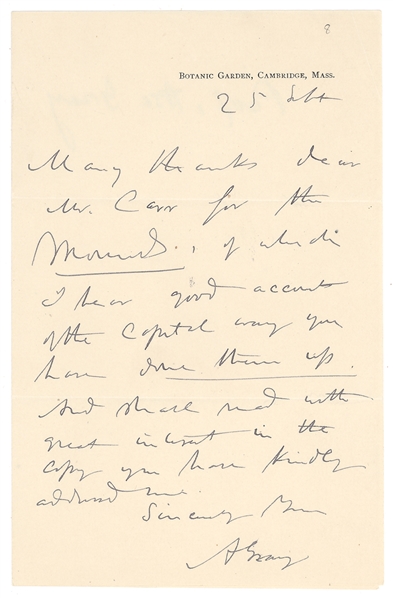 8
BOTANIC GARDEN, CAMBRIDGE, MASS.
25 Sept
Many thanks dear
Mr. Carr for the
Mounds, of which
I hear good accounts
of the capital way you
have done them up.
And shall read with
great interest in the
copy you have kindly
addressed me.
Sincerely Yours
A Gray